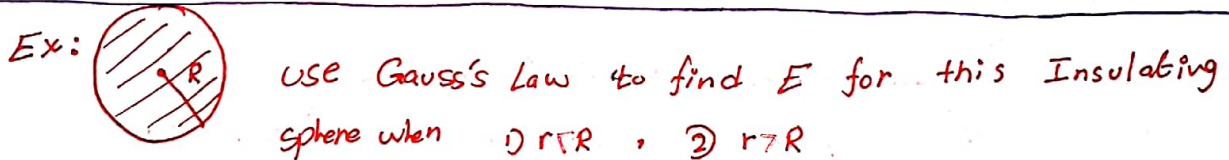 Ex:
R
use Gauss's Law to find E for this Insulating
sphere when 1) r<R , ② r>R